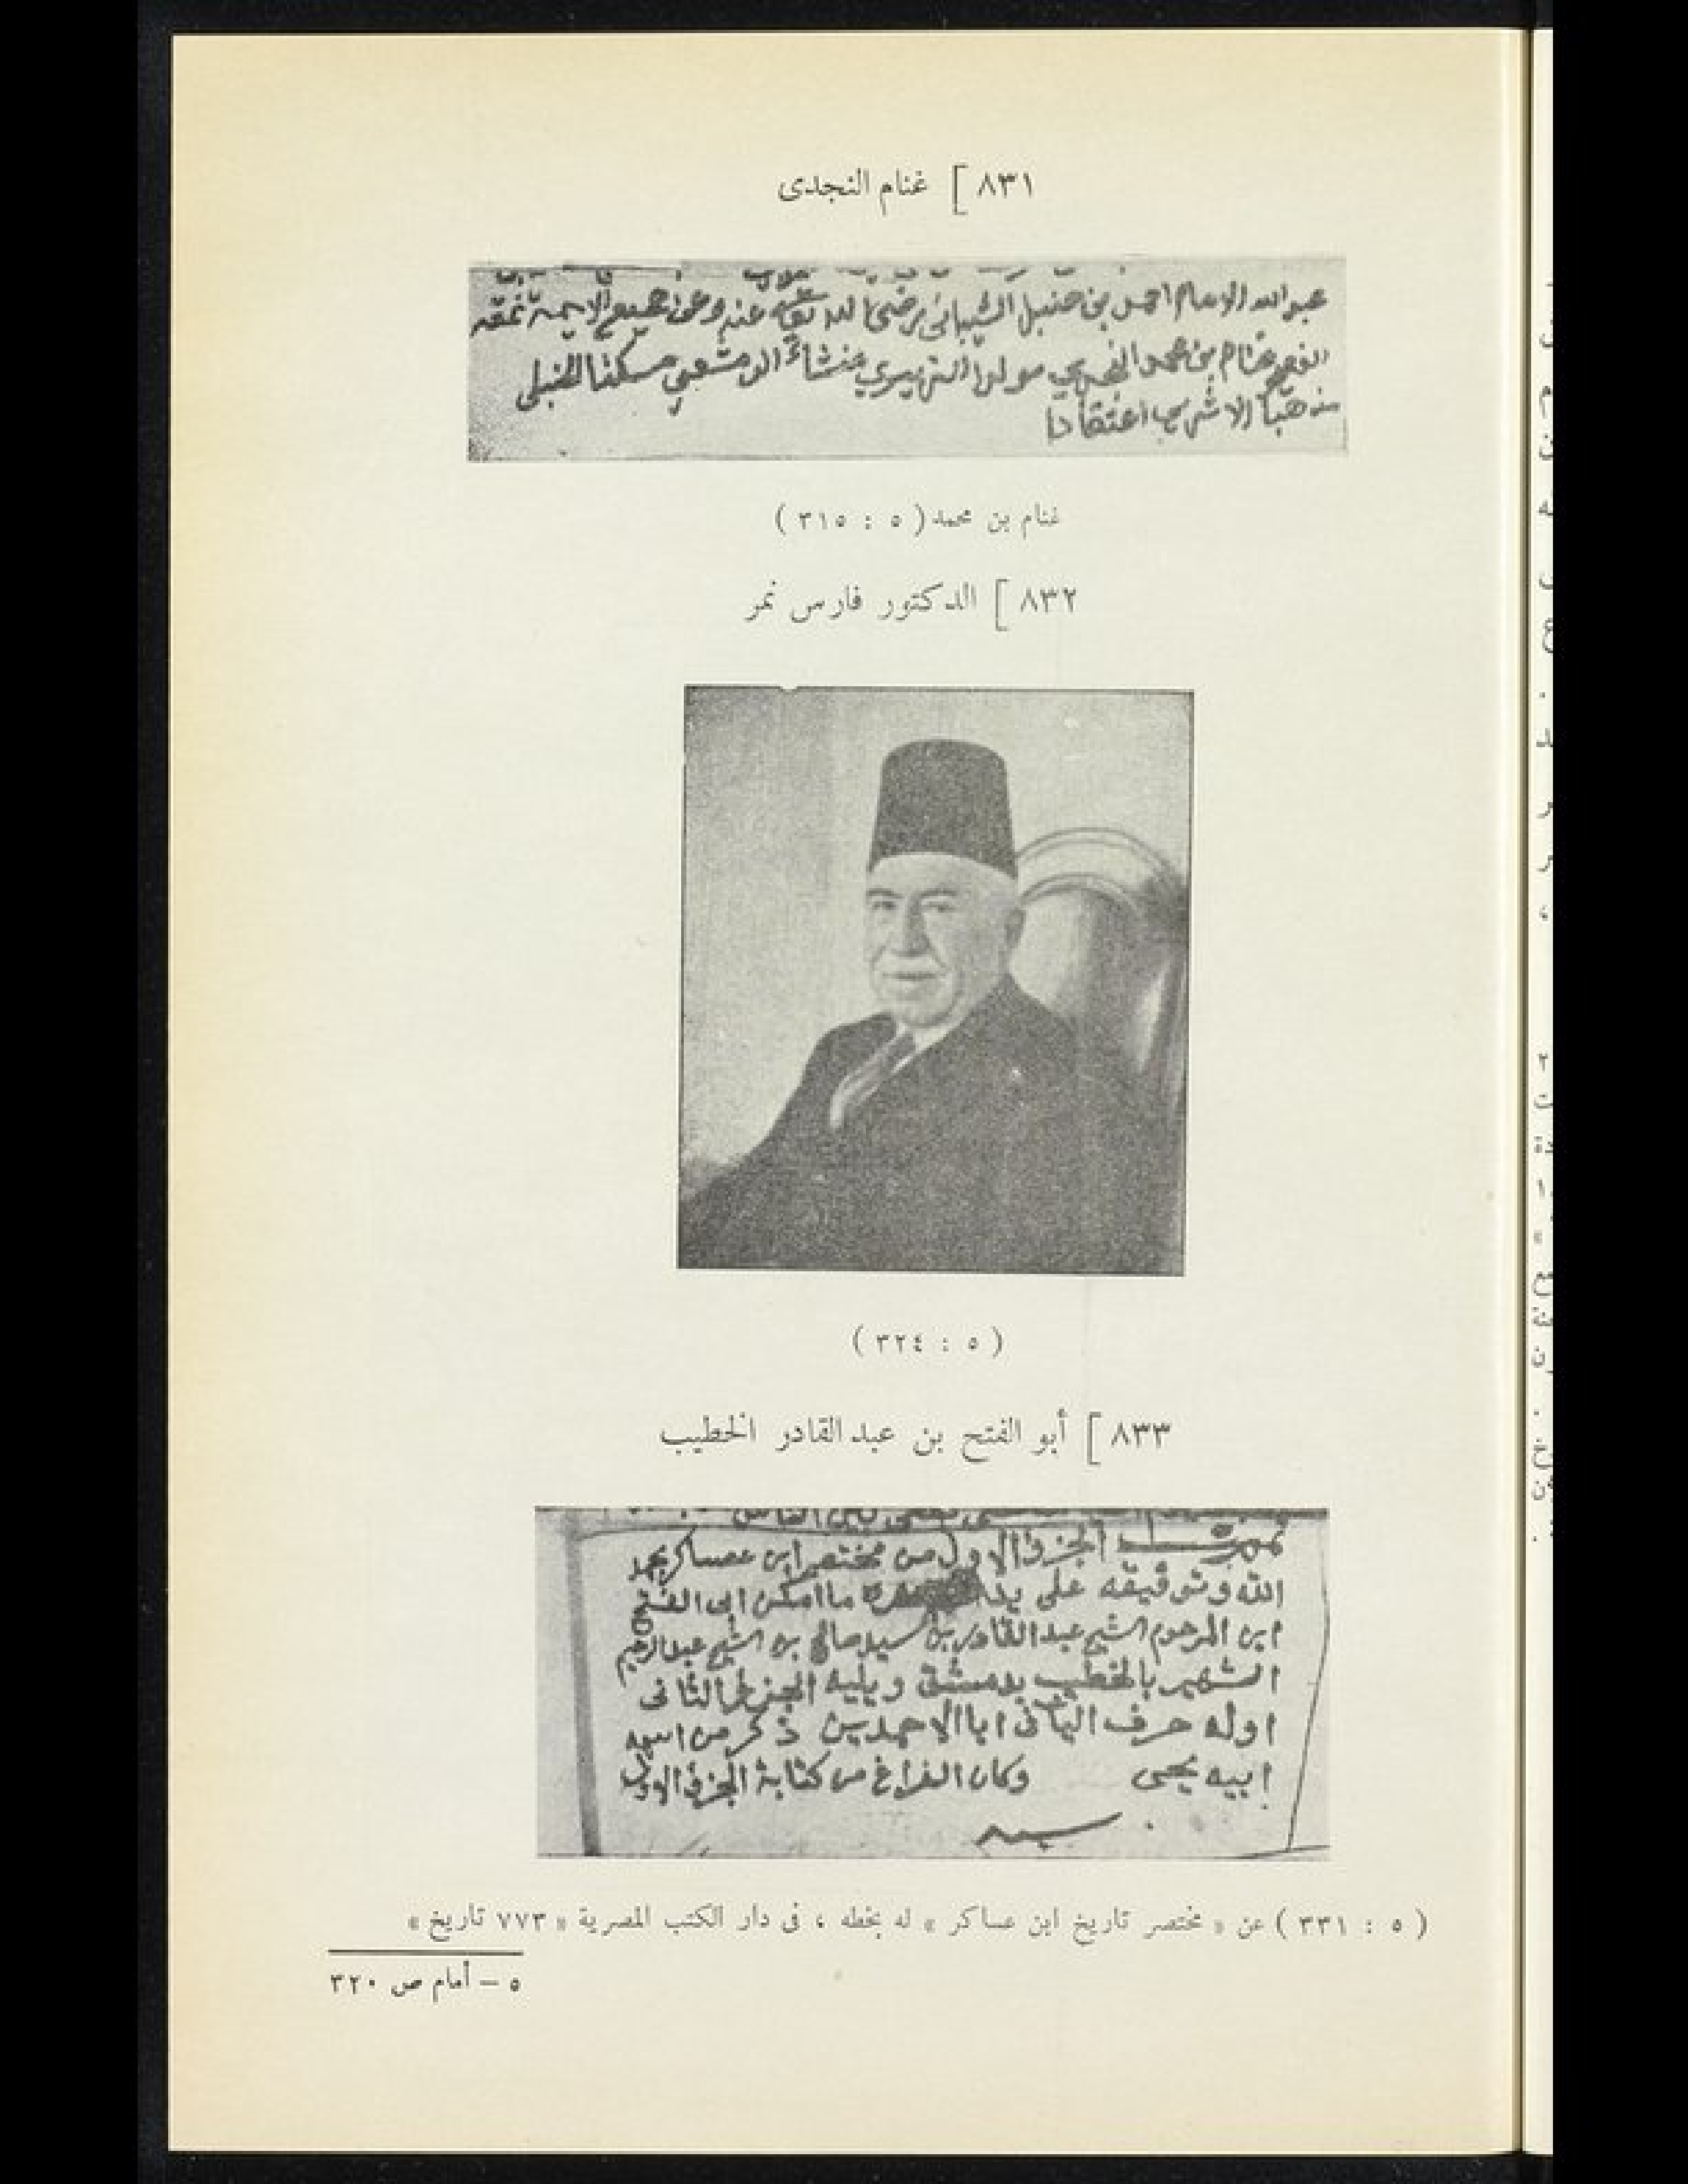 ٨٣١ [ غنام النجدى
عبد الله الامام احمد بن حنبل الشيبانى رضى الله تعالى عنه وعن جميع الايمة نمقه
الفقير غنام بن محمد النجدي مولدا الزبيري منشاءً الدمشقي مسكنا الحنبلي
مذهباً الاثري اعتقادا
غنام بن محمد ( ٥ : ٣١٥ )
٨٣٢ [ الدكتور فارس نمر
( ٥ : ٣٢٤ )
٨٣٣ [ أبو الفتح بن عبد القادر الخطيب
الجزء الاول من مختصر ابن عساكر بحمد
الله وتوفيقه على يد ما امكن ابى الفتح
ابن المرحوم الشيخ عبد القادر بن السيد صالح بن الشيخ عبد الرحيم
الشهير بالخطيب بدمشق ويليه الجزء الثانى
اوله حرف ابا الاحمدين ذكر من اسم
ابيه يحيى وكان الفراغ من كتابة الجزء الاول
( ٥ : ٣٣١ ) عن « مختصر تاريخ ابن عساكر » له بخطه ، فى دار الكتب المصرية « ٧٧٣ تاريخ »
٥ – أمام ص ٣٢٠